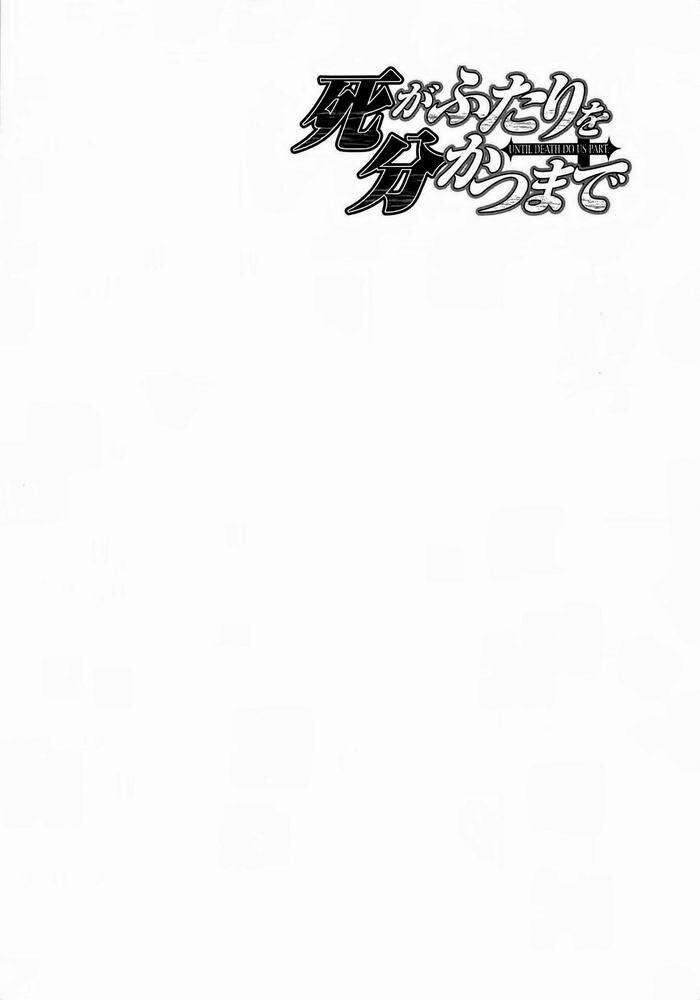 死がふたりを
分かつまで
UNTIL DEATH DO US PART